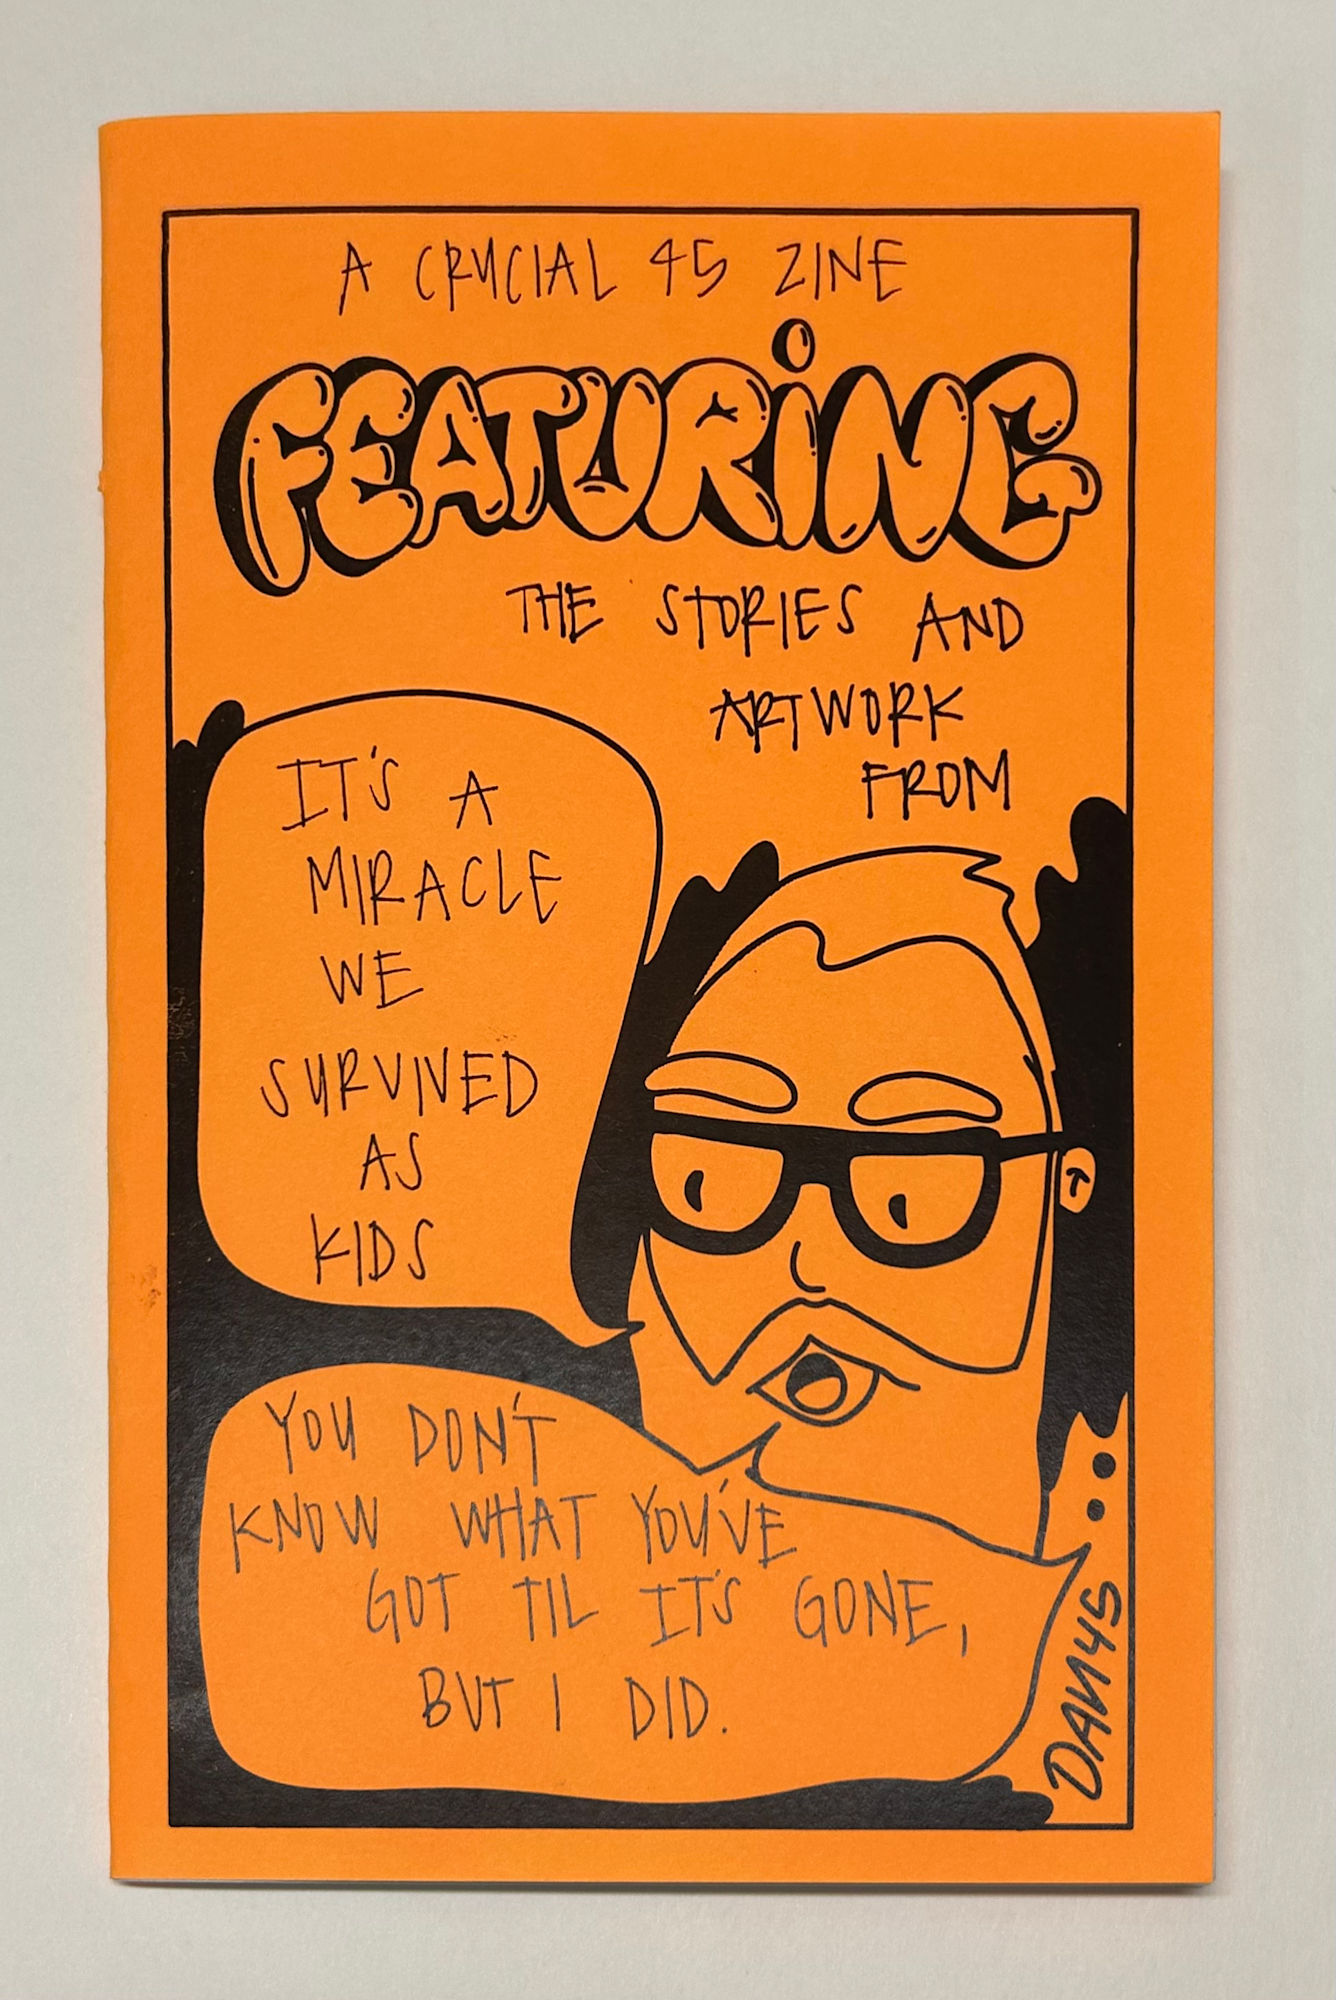 A CRUCIAL 45 ZINE
FEATURiNG
THE STORIES AND
ARTWORK
FROM
IT'S A
MIRACLE
WE
SURVIVED
AS
KIDS
YOU DON'T
KNOW WHAT YOU'VE
GOT TIL IT'S GONE,
BUT I DID.
DAN45